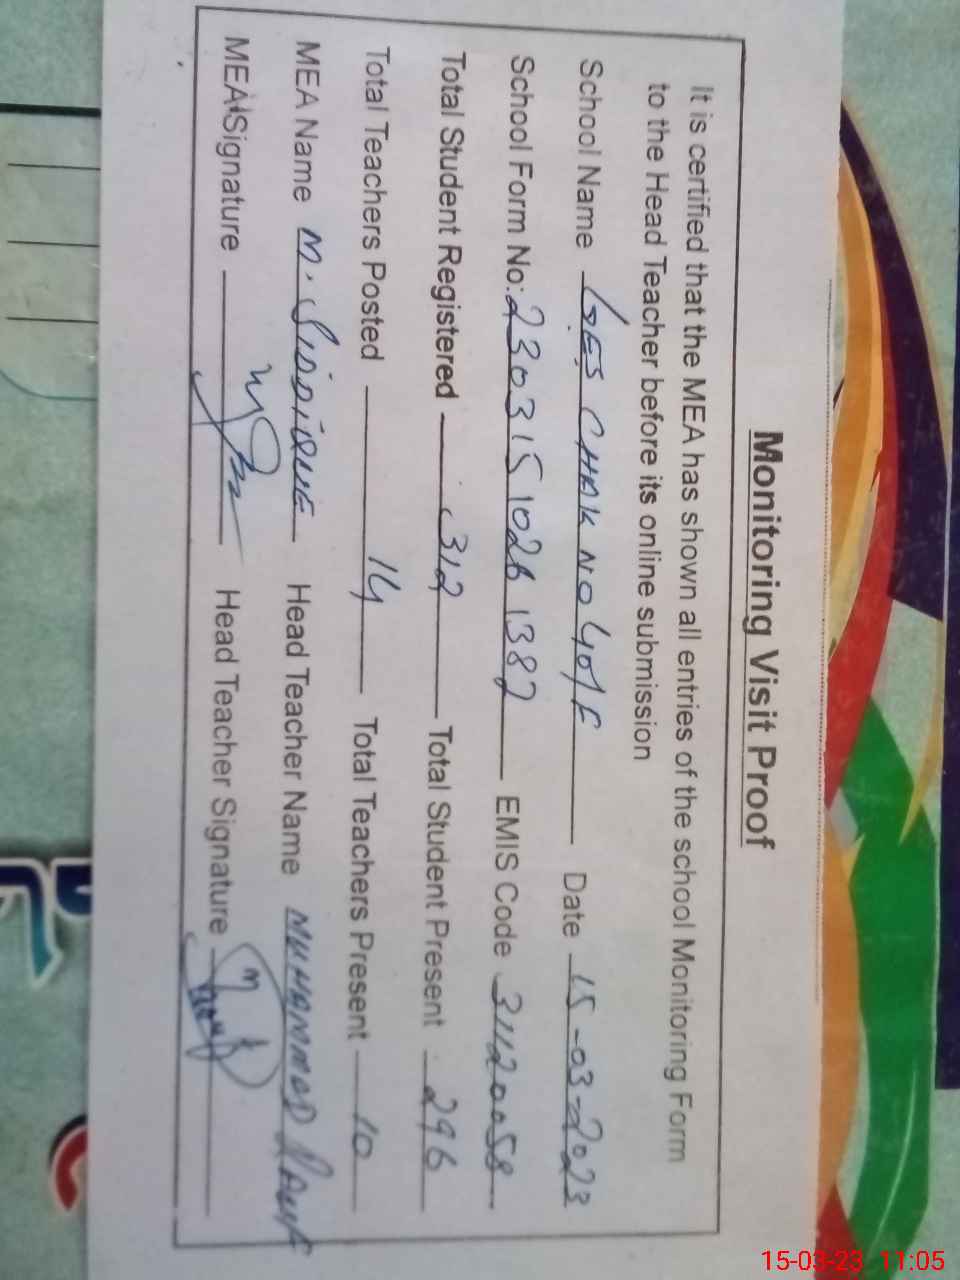 Monitoring Visit Proof
It is certified that the MEA has shown all entries of the school Monitoring Form
to the Head Teacher before its online submission
School Name GES CHAK NO 401F Date 15-03-2023
School Form No: 23031510261382 EMIS Code 31120058
Total Student Registered 312 Total Student Present 296
Total Teachers Posted 14 Total Teachers Present 10
MEA Name M. SIDDIQUE Head Teacher Name MUHAMMAD Rauf
MEA Signature Head Teacher Signature
15-03-23 11:05